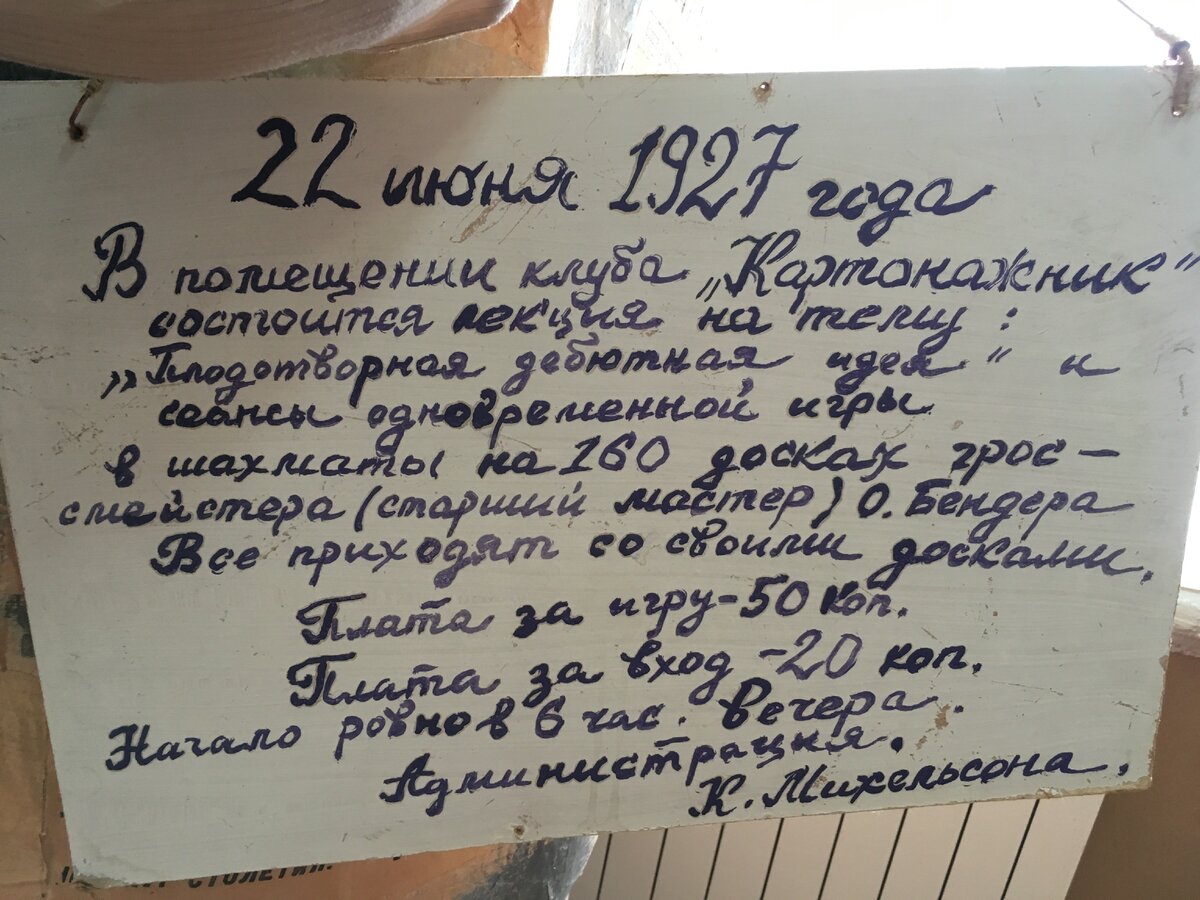 22 июня 1927 года
В помещении клуба „Картонажник"
состоится лекция на тему:
„Плодотворная дебютная идея" и
сеансы одновременной игры
в шахматы на 160 досках грос-
смейстера (старший мастер) О. Бендера
Все приходят со своими досками.
Плата за игру-50 коп.
Плата за вход -20 коп.
Начало ровно в 6 час. вечера.
Администрация.
К. Михельсона.
СТОЛЕТИЯ.